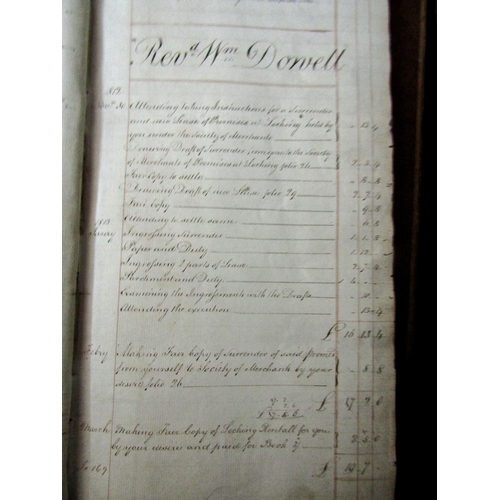 Revd Wm Dowell
1812
Attending taking Instructions for a Surrender
and new Lease of Premises at Locking held by
you under the Society of Merchants - 13 4
Drawing Draft of Surrender from you to the Society
of Merchants of Premises at Locking folio 26 2 2 4
Fair Copy to settle - 8 8
Drawing Draft of new Lease folio 29
Fair Copy
1813
Attending to settle same
Ingrossing Surrender
Paper and Duty
Ingrossing 2 parts of Lease
Parchment and Duty
Examining the Ingrossments with the Drafts
Attending the execution - 13 4
£ 16 13 4
Febry Making Fair Copy of Surrender of said Premises
from yourself to Society of Merchants by your
desire folio 26 - 8 8
£ 17 2 6
March Making Fair Copy of Locking Rentall for you
by your desire and paid for Book
£